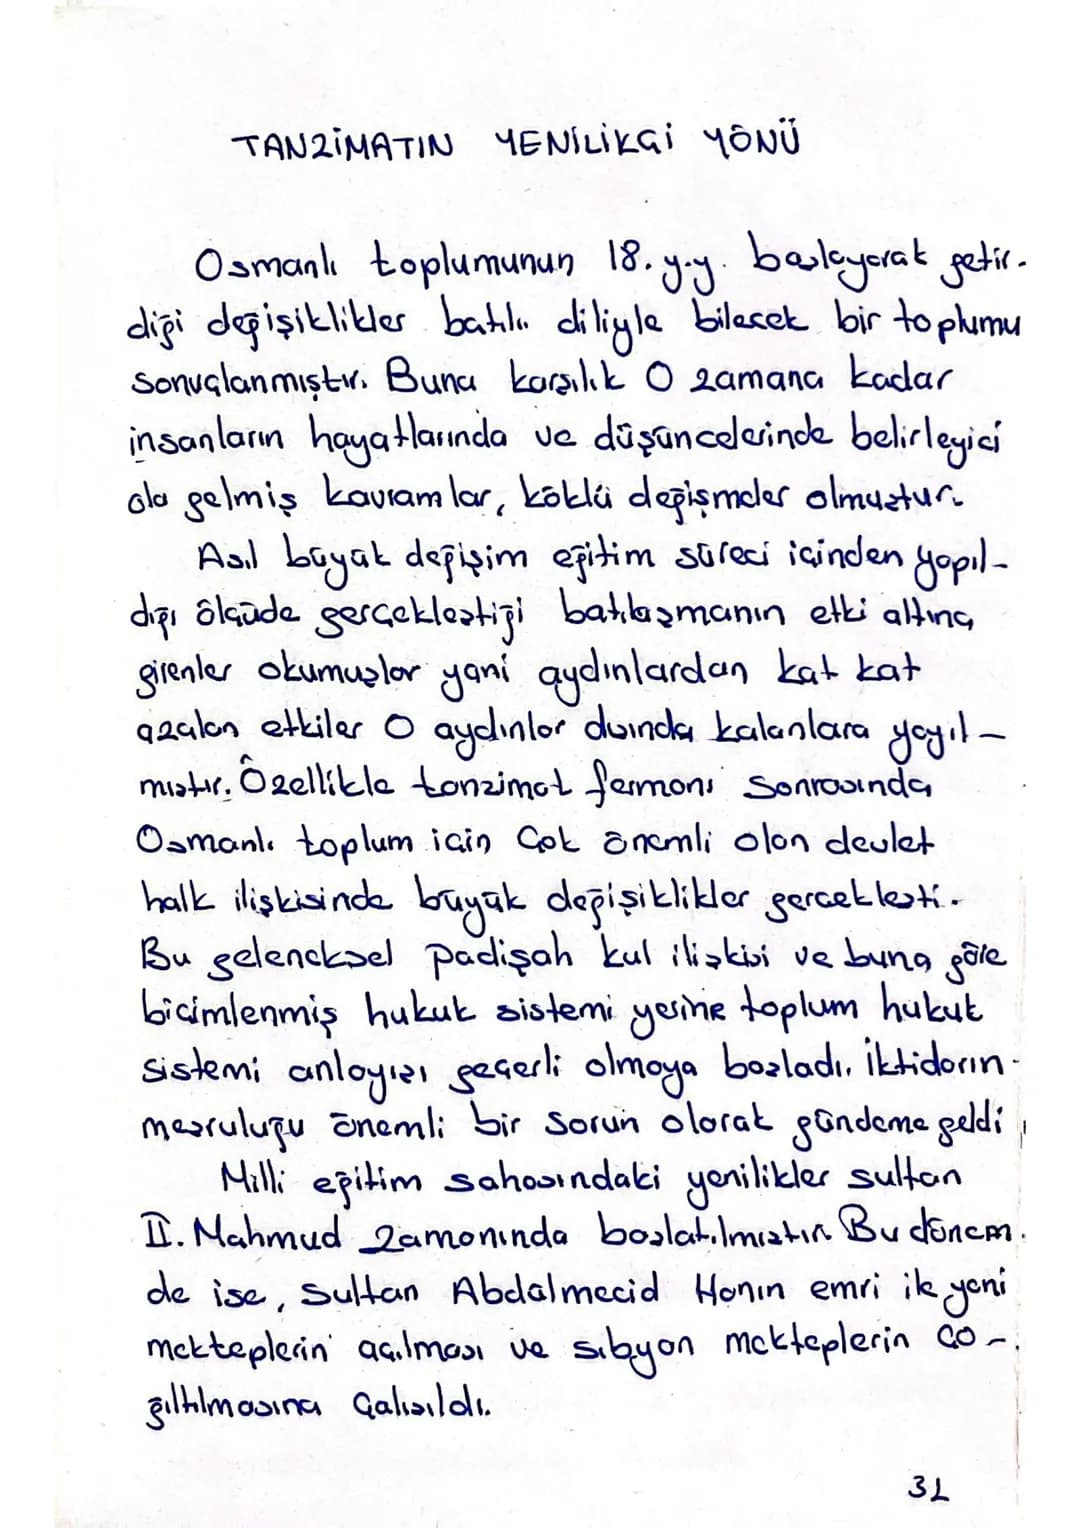 TANZİMATIN YENİLİKÇİ YÖNÜ
Osmanlı toplumunun 18.y.y. başlayarak getir-
diği değişiklikler batılı diliyle bilecek bir toplumu
sonuçlanmıştır. Buna karşılık O zamana kadar
insanların hayatlarında ve düşüncelerinde belirleyici
ola gelmiş kavramlar, köklü değişmeler olmuştur.
Asıl büyük değişim eğitim süreci içinden yapıl-
dığı ölçüde gerçekleştiği batılaşmanın etki altına
girenler okumuşlar yani aydınlardan kat kat
azalan etkiler O aydınlar dışında kalanlara yayıl-
mıştır. Özellikle tanzimat fermanı Sonrasında
Osmanlı toplum için Çok önemli olan devlet
halk ilişkisinde büyük değişiklikler gerçekleşti.
Bu geleneksel padişah kul ilişkisi ve buna göre
biçimlenmiş hukuk sistemi yerine toplum hukuk
sistemi anlayışı geçerli olmaya başladı. İktidarın
meşruluğu önemli bir sorun olarak gündeme geldi
Milli eğitim sahasındaki yenilikler sultan
II. Mahmud Zamanında başlatılmıştır. Bu dönem
de ise, Sultan Abdülmecid Hanın emri ile yeni
mekteplerin açılması ve sıbyan mekteplerin ço-
ğıltılmasına Çalışıldı.
31